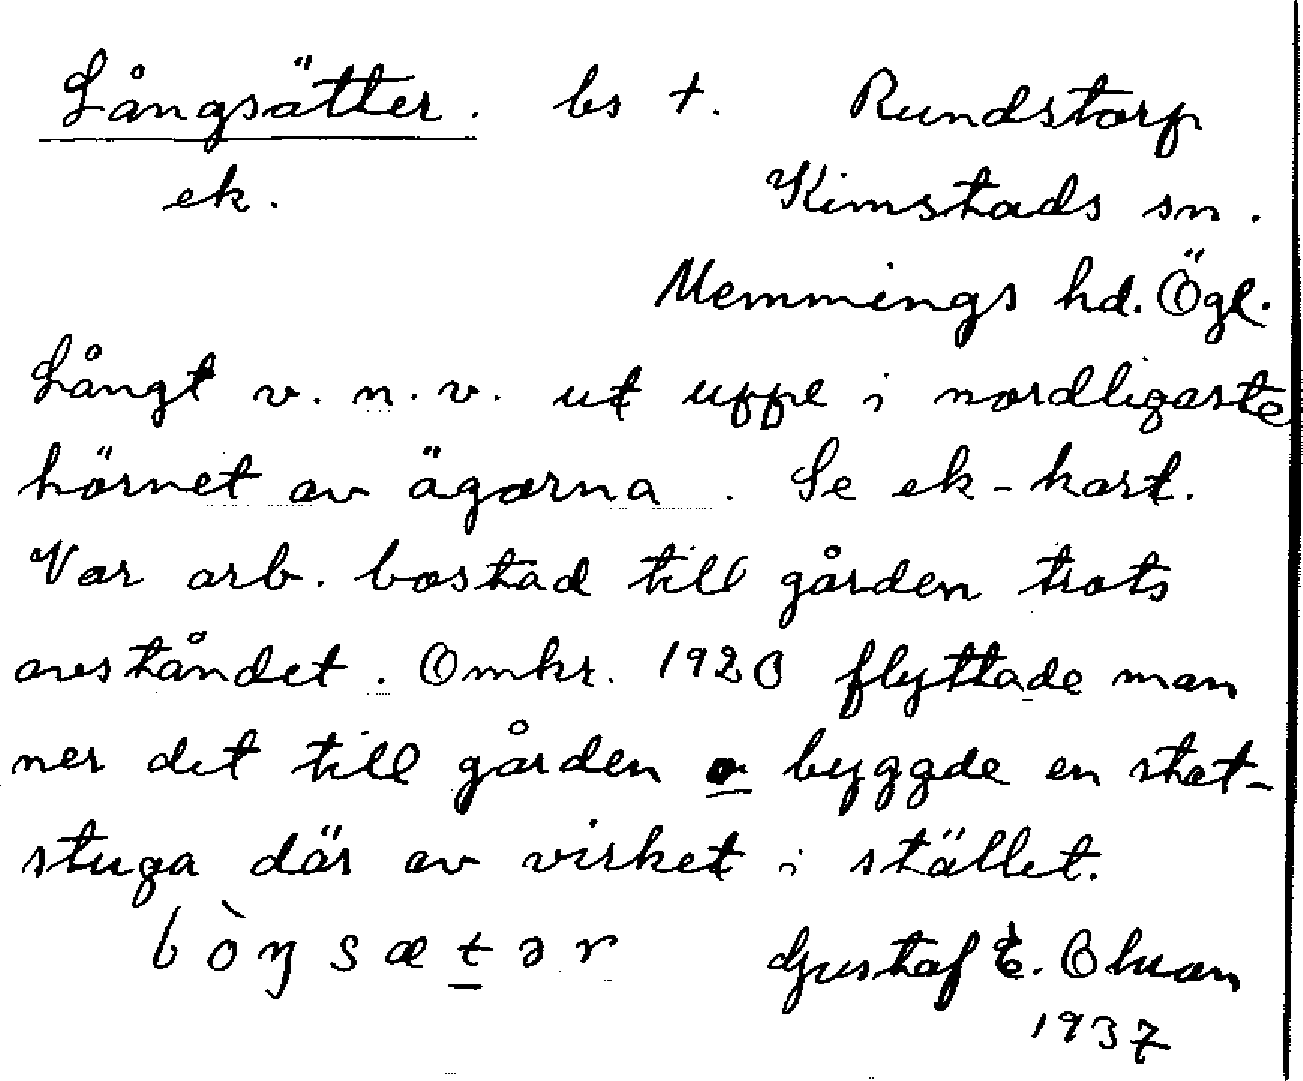 Långsätter. bs †. Rundstorp
ek. Kimstads sn.
Memmings hd. Ögl.
Långt v. n. v. ut uppe i nordligaste
hörnet av ägorna. Se ek-kart.
Var arb. bostad till gården trots
avståndet. Omkr. 1920 flyttade man
ner det till gården o byggde en stat-
stuga där av virket i stället.
lòŋsætər Gustaf E. Olsson
1937